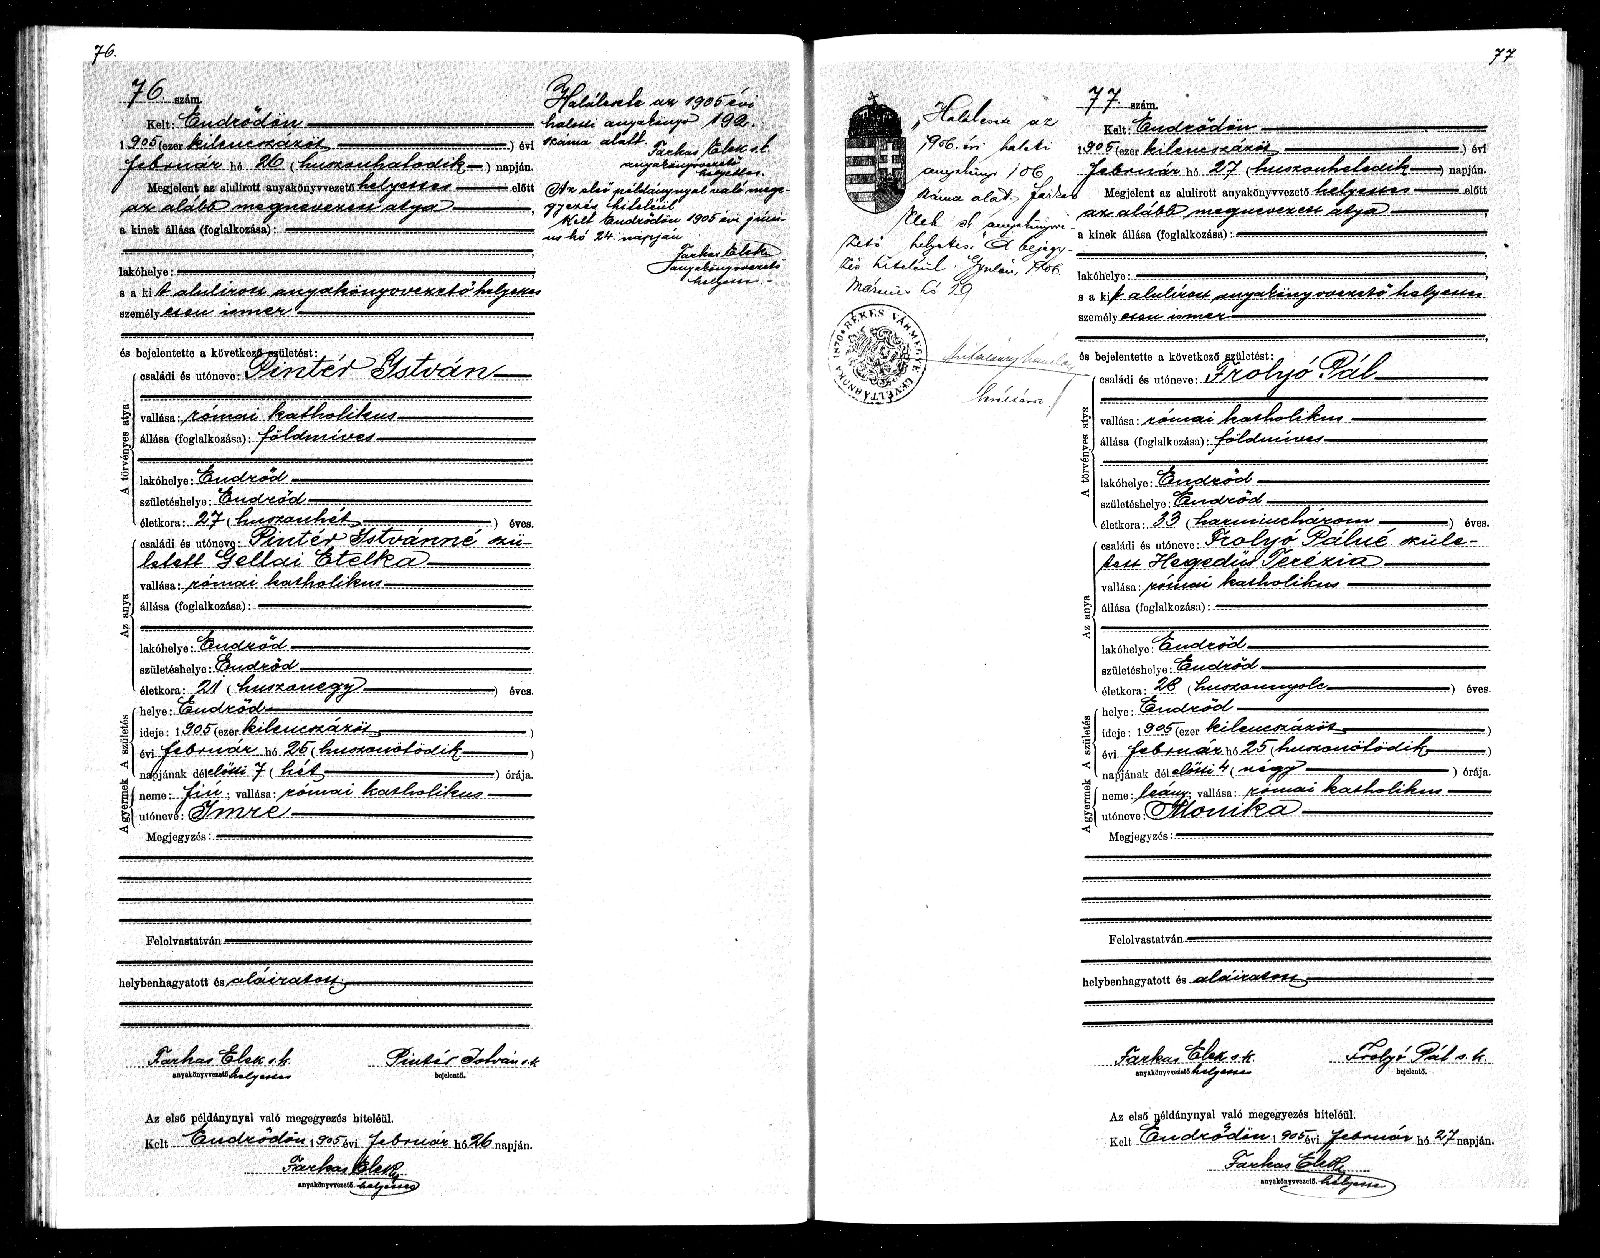 76.
76 szám.
Kelt: Endrődön
1905 (ezer kilenczszázöt) évi
február hó 26 (huszonhatodik) napján.
Megjelent az alulirott anyakönyvvezető helyettes előtt
az alább megnevezett atya
a kinek állása (foglalkozása):
lakóhelye:
s a kit alulirott anyakönyvvezető helyettes
személyesen ismer
és bejelentette a következő születést:
A törvényes atya
családi és utóneve: Pintér István
vallása: római katholikus
állása (foglalkozása): földmíves
lakóhelye: Endrőd
születéshelye: Endrőd
életkora: 27 (huszonhét) éves.
Az anya
családi és utóneve: Pintér Istvánné szü-
letett Gellai Etelka
vallása: római katholikus
állása (foglalkozása):
lakóhelye: Endrőd
születéshelye: Endrőd
életkora: 21 (huszonegy) éves.
A születés
helye: Endrőd
ideje: 1905 (ezer kilenczszázöt)
évi február hó 25 (huszonötödik)
napjának délelőtti 7 (hét) órája.
A gyermek
neme: fiú; vallása: római katholikus
utóneve: Imre
Megjegyzés:
Felolvastatván
helybenhagyatott és aláiratott
Farkas Elek s.k. Pintér István s.k.
anyakönyvvezető helyettes bejelentő.
Az első példánynyal való megegyezés hiteléül.
Kelt Endrődön 1905 évi február hó 26 napján.
Farkas Elek
anyakönyvvezető. helyettes
Halálesete az 1905 évi
halotti anyakönyv 192.
száma alatt.
Farkas Elek s.k.
anyakönyvvezető
helyettes.
Az első példánynyal való mege-
gyezés hiteléül
Kelt Endrődön 1905 évi júni-
us hó 24. napján
Farkas Elek
anyakönyvvezető
helyettes.
77
"Halálesete az
1906. évi halotti
anyakönyv 106
száma alatt. Farkas
Elek sk anyakönyvve-
zető helyettes." A bejegy-
zés hiteléül. Gyulán, 1906.
Márczius hó 29
BÉKÉS VÁRMEGYE LEVÉLTÁRNOKA 1870
77 szám.
Kelt: Endrődön
1905 (ezer kilenczszázöt) évi
február hó 27 (huszonhetedik) napján.
Megjelent az alulirott anyakönyvvezető helyettes előtt
az alább megnevezett atya
a kinek állása (foglalkozása):
lakóhelye:
s a kit alulirott anyakönyvvezető helyettes
személyesen ismer
és bejelentette a következő születést:
A törvényes atya
családi és utóneve: Frolyó Pál
vallása: római katholikus
állása (foglalkozása): földmíves
lakóhelye: Endrőd
születéshelye: Endrőd
életkora: 33 (harminczhárom) éves.
Az anya
családi és utóneve: Frolyó Pálné szüle-
tett Hegedüs Terézia
vallása: római katholikus
állása (foglalkozása):
lakóhelye: Endrőd
születéshelye: Endrőd
életkora: 28 (huszonnyolc) éves.
A születés
helye: Endrőd
ideje: 1905 (ezer kilenczszázöt)
évi február hó 25 (huszonötödik)
napjának délelőtti 4 (négy) órája.
A gyermek
neme: leány; vallása: római katholikus
utóneve: Monika
Megjegyzés:
Felolvastatván
helybenhagyatott és aláiratott
Farkas Elek s.k. Frolyó Pál s.k.
anyakönyvvezető. helyettes bejelentő.
Az első példánynyal való megegyezés hiteléül.
Kelt Endrődön 1905 évi február hó 27 napján.
Farkas Elek
anyakönyvvezető. helyettes